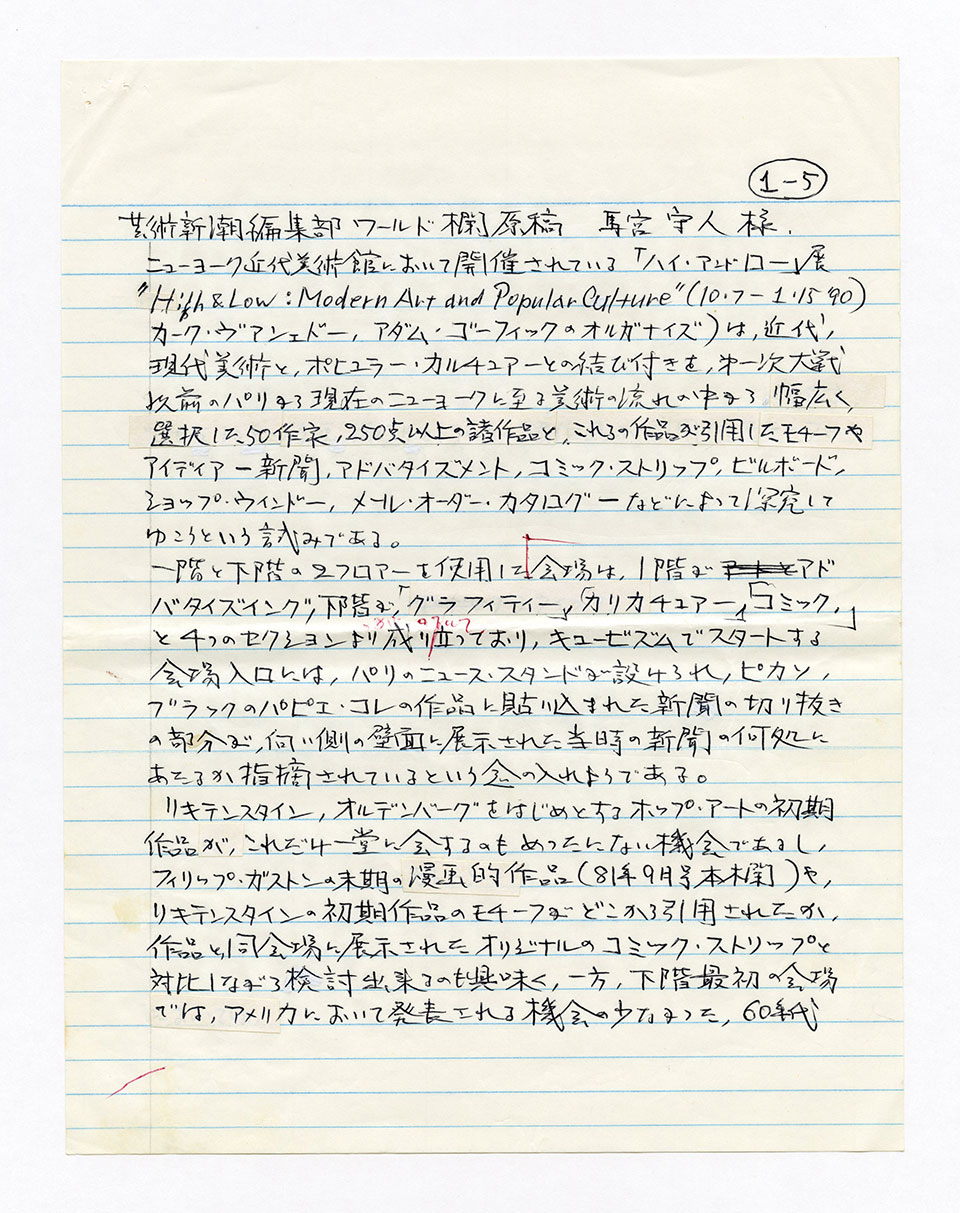 1-5
芸術新潮編集部 ワールド欄原稿 馬宮守人様.
ニューヨーク近代美術館において開催されている「ハイ・アンドロー」展
"High & Low : Modern Art and Popular Culture" (10・7-1・15 '90)
カーク・ヴァンェドー, アダム・ゴーフィックのオルガナイズ)は,近代,
現代美術と,ポピュラー・カルチュアーとの結び付きを,第一次大戦
以前のパリから現在のニューヨークに至る美術の流れの中から 幅広く,
選択した50作家,250点以上の諸作品と,これらの作品が引用したモチーフや
アイディアー新聞,アドバタイズメント,コミック・ストリップ,ビルボード,
ショップ・ウィンドー, メール・オーダー・カタログーなどによって探究して
ゆこうという試みである。
一階と下階の2フロアーを使用した会場は,1階がアド
バタイズイング,下階が,「グラフィティー」,「カリカチュアー」,「コミック」,
と4つのセクションより成り立っており,キュービズムでスタートする
会場入口には,パリのニュース・スタンドが設けられ,ピカソ,
ブラックのパピエ・コレの作品に貼り込まれた新聞の切り抜き
の部分が,向い側の壁面に展示された当時の新聞の何処に
あたるか指摘されているという念の入れようである。
リキテンスタイン,オルデンバーグをはじめとするポップ・アートの初期
作品が,これだけ一堂に会するのもめったにない機会であるし,
フィリップ・ガストンの末期の漫画的作品(81年9月号本欄)や,
リキテンスタインの初期作品のモチーフがどこから引用されたか,
作品と同会場に展示されたオリジナルのコミック・ストリップと
対比しながら検討出来るのも興味く,一方,下階最初の会場
では,アメリカにおいて発表される機会の少なかった,60年代